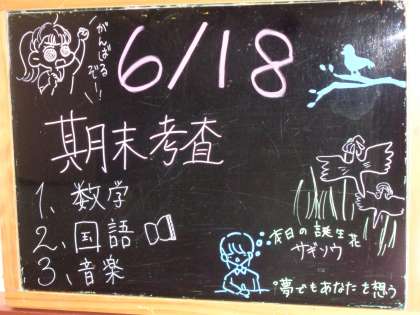 がんばる
ぞー!
6/18
期末考査
1、数学
2、国語
3、音楽
本日の誕生花
サギソウ
・夢でもあなたを想う